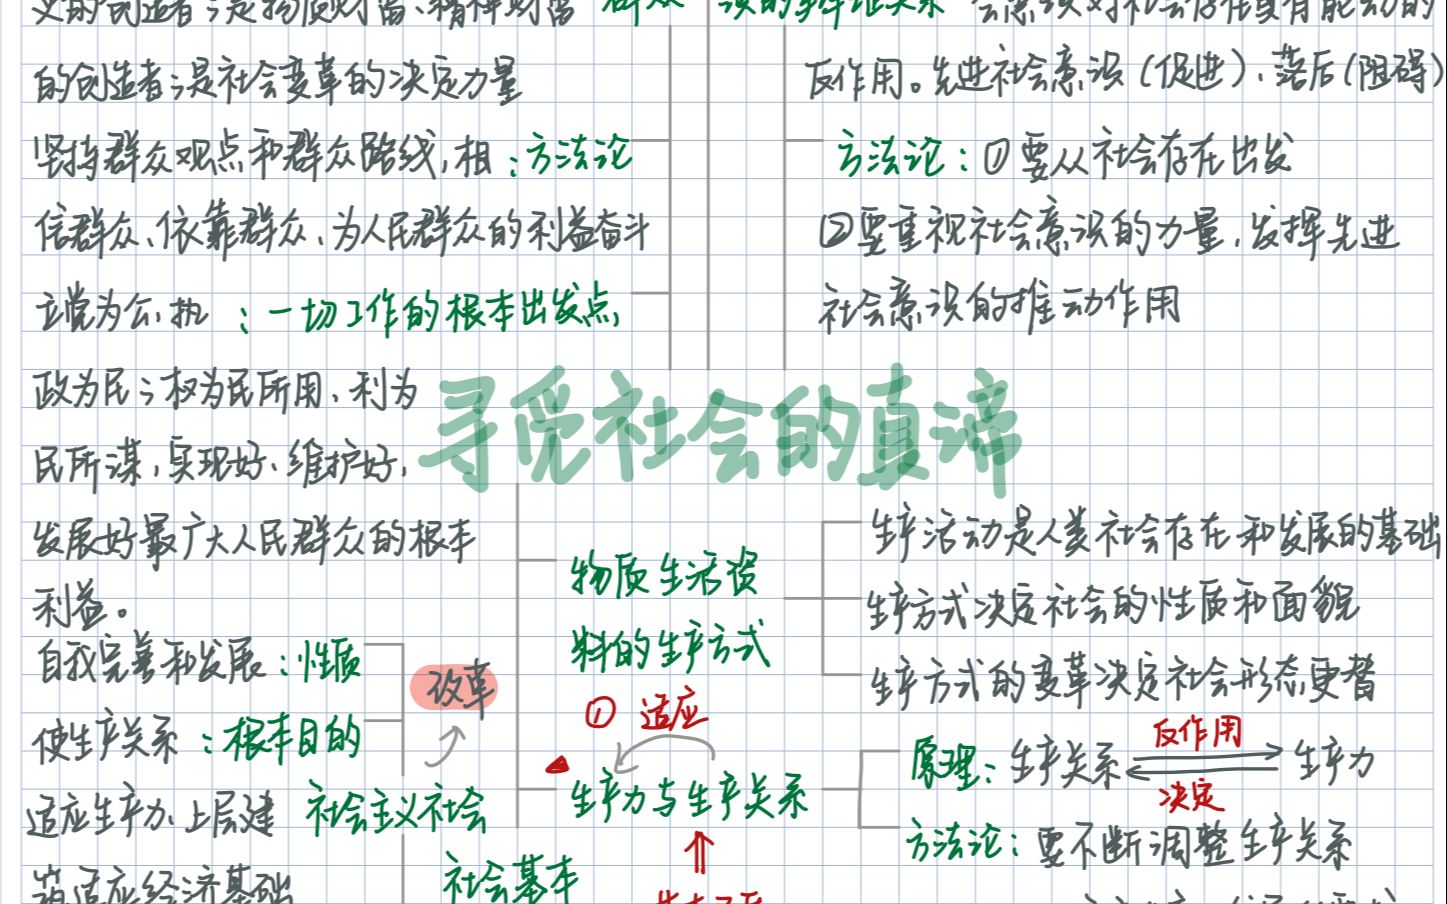 的创造者；是社会变革的决定力量
坚持群众观点和群众路线，相：方法论
信群众、依靠群众、为人民群众的利益奋斗
立党为公、执：一切工作的根本出发点
政为民；权为民所用、利为
民所谋，实现好、维护好、
发展好最广大人民群众的根本
利益。
反作用。先进社会意识（促进）、落后（阻碍）
方法论：①要从社会存在出发
②要重视社会意识的力量，发挥先进
社会意识的推动作用
寻觅社会的真谛
自我完善和发展：性质
使生产关系：根本目的
适应生产力、上层建
筑适应经济基础
改革
社会主义社会
社会基本
物质生活资
料的生产方式
生产活动是人类社会存在和发展的基础
生产方式决定社会的性质和面貌
生产方式的变革决定社会形态更替
① 适应
生产力与生产关系
原理：生产关系 反作用 生产力
决定
方法论：要不断调整生产关系